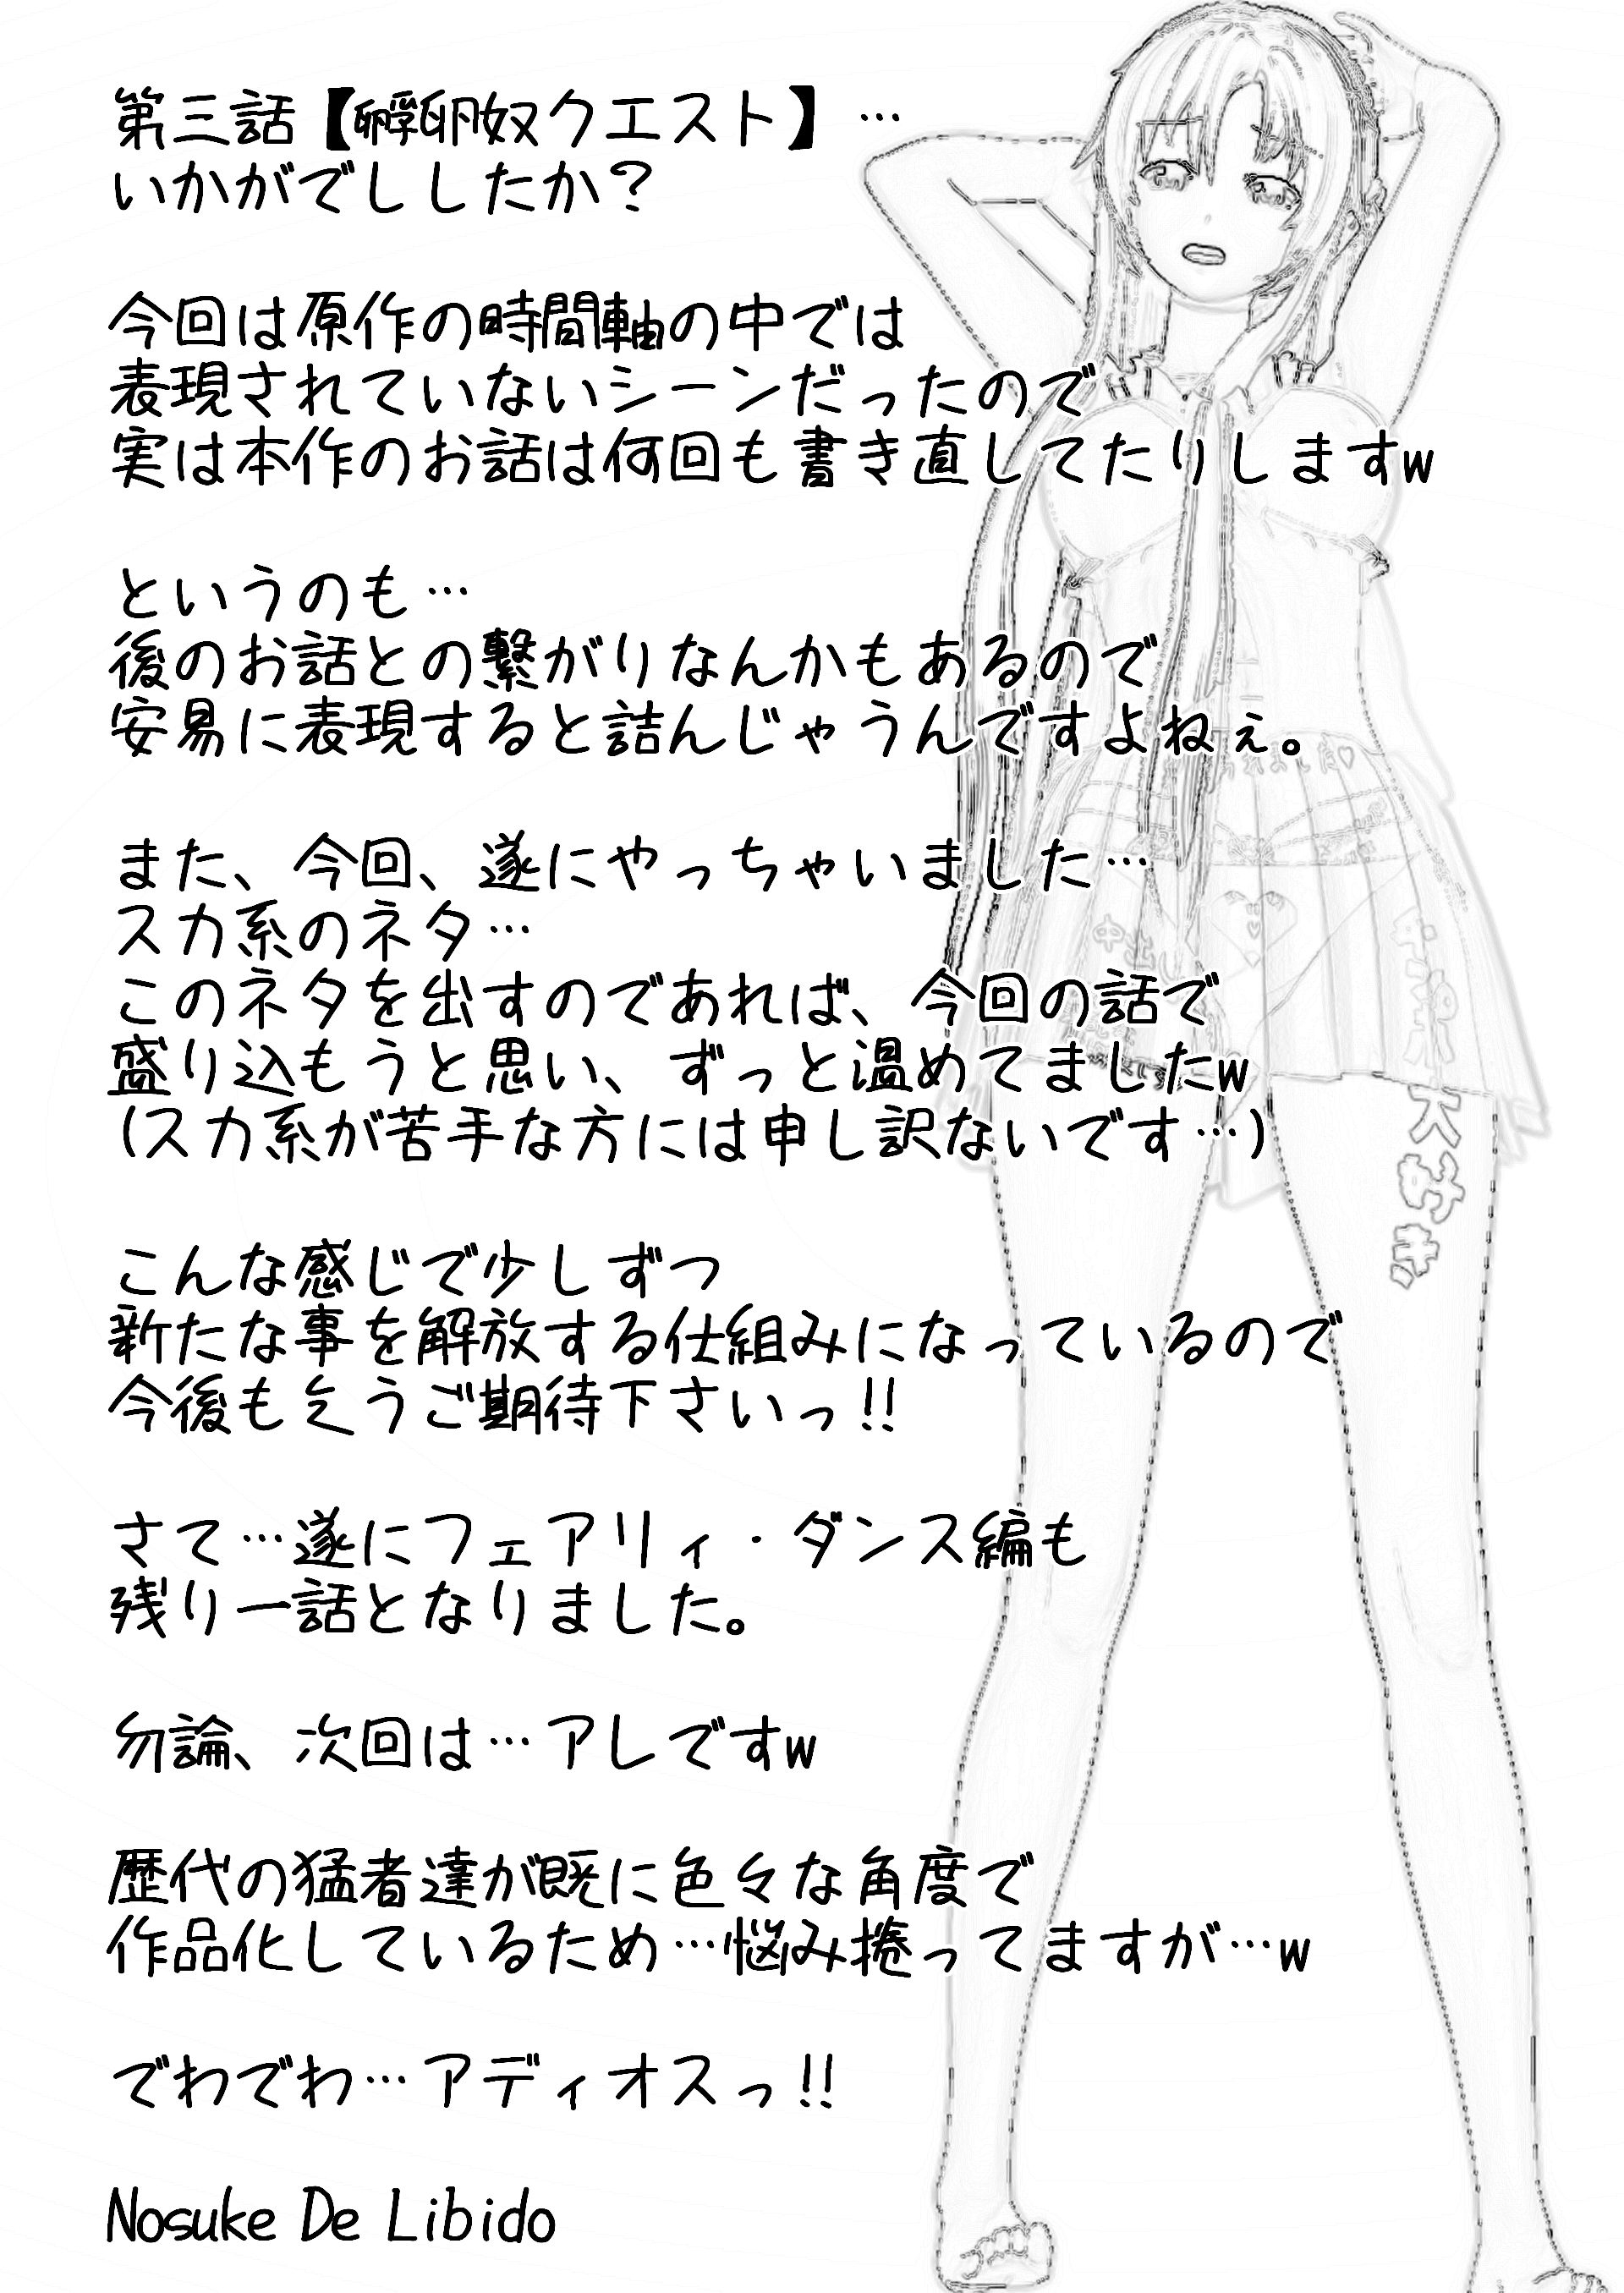 第三話【孵卵奴クエスト】…
いかがでししたか？
今回は原作の時間軸の中では
表現されていないシーンだったので
実は本作のお話は何回も書き直してたりしますw
というのも…
後のお話との繋がりなんかもあるので
安易に表現すると詰んじゃうんですよねぇ。
また、今回、遂にやっちゃいました…
スカ系のネタ…
このネタを出すのであれば、今回の話で
盛り込もうと思い、ずっと温めてましたw
(スカ系が苦手な方には申し訳ないです…)
こんな感じで少しずつ
新たな事を解放する仕組みになっているので
今後も乞うご期待下さいっ!!
さて…遂にフェアリィ・ダンス編も
残り一話となりました。
勿論、次回は…アレですw
歴代の猛者達が既に色々な角度で
作品化しているため…悩み捲ってますが…w
でわでわ…アディオスっ!!
Nosuke De Libido
大好き